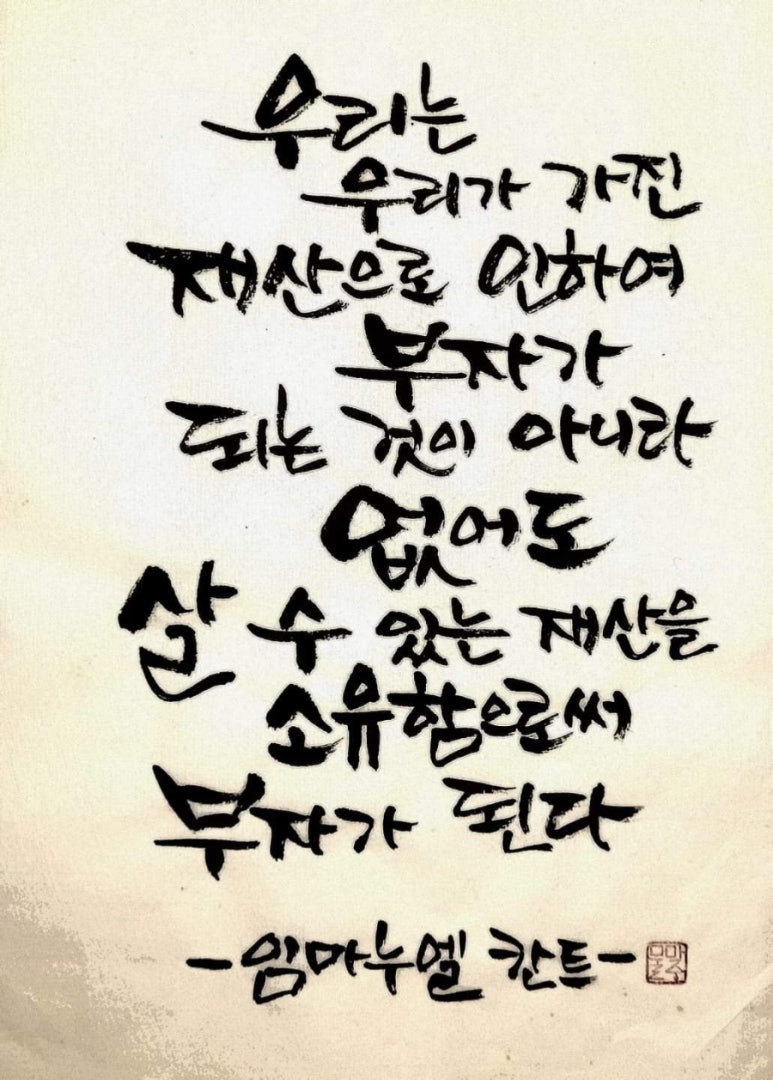 우리는
우리가 가진
재산으로 인하여
부자가
되는 것이 아니라
없어도
살 수 있는 재산을
소유함으로써
부자가 된다
-임마누엘 칸트-